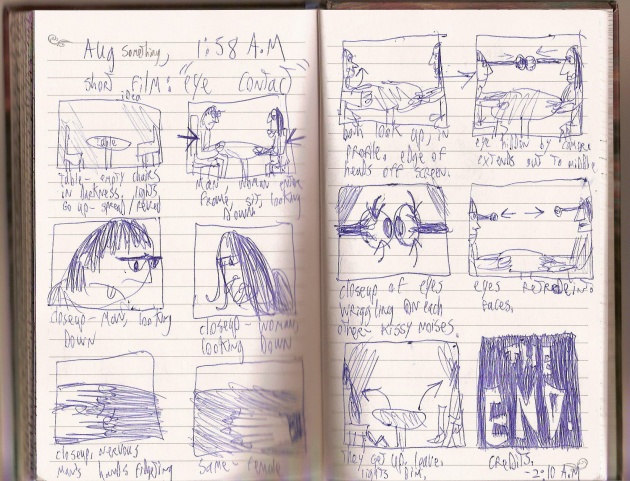 Aug something, 1:58 A.M
short film: "eye contact"
idea
table
table- empty chairs
in darkness, lights
go up- spread/reveal
Man, woman enter
frame, sit, looking
down
closeup- man, looking
down
closeup- woman,
looking down
closeup, nervous
mans hands fidgeting
same- female
both look up, in
profile. edge of
hands off screen.
eye hidden by camera
extends out to middle
closeup of eyes
wriggling on each
other- kissy noises.
eyes retract into
faces.
They get up, leave.
lights dim.
THE
END.
credits.
-2:10 A.M